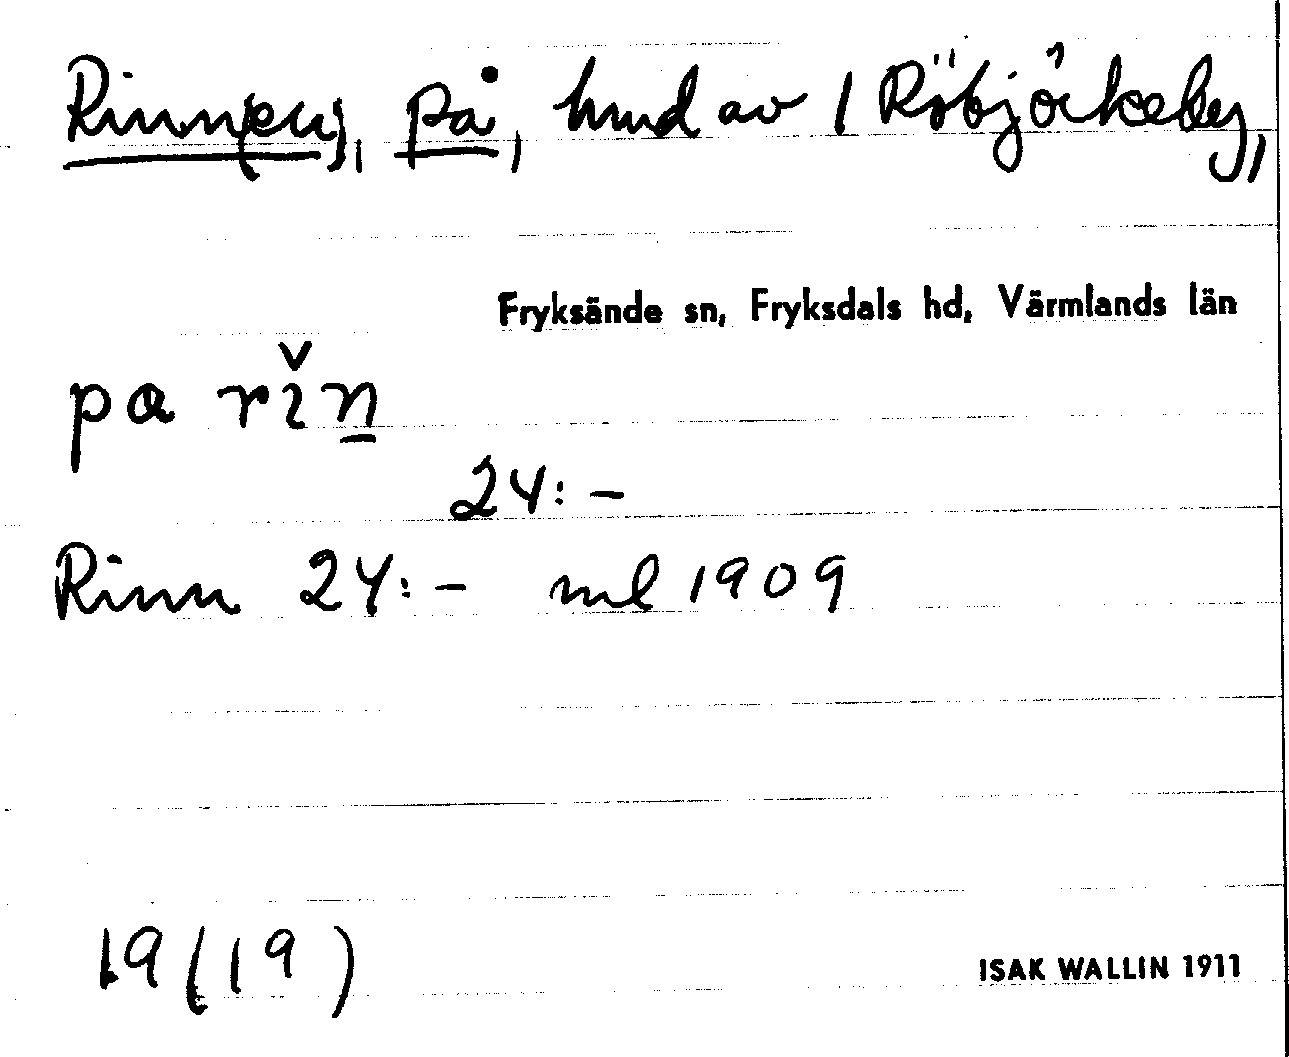 Rinn(en), på, hmd av 1 Röbjörkeby,
Fryksände sn, Fryksdals hd, Värmlands län
pa rin
24:-
Rinn 24:- ml 1909
19 (19)
ISAK WALLIN 1911